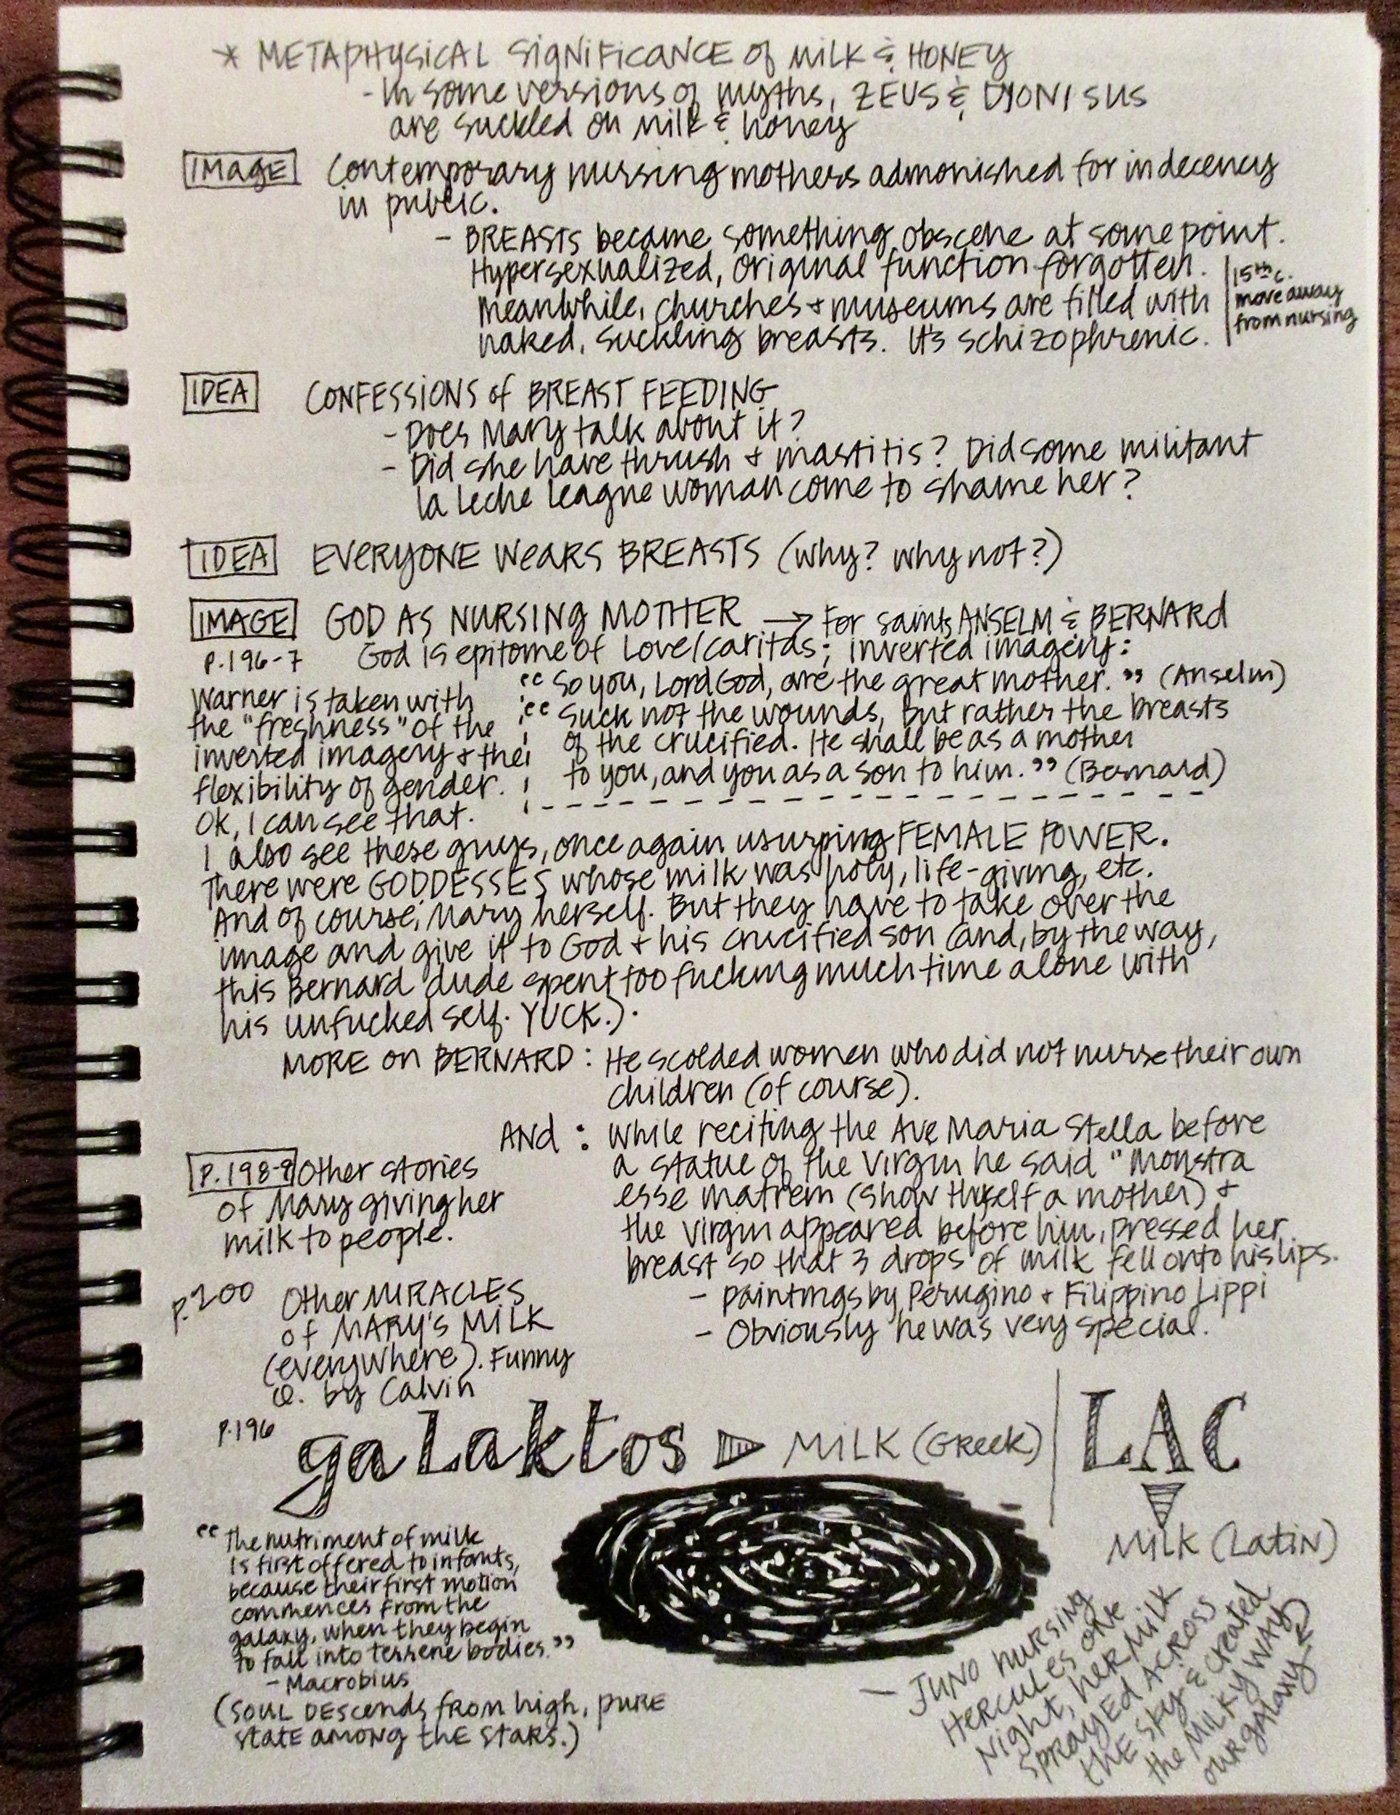 * METAPHYSICAL SIGNIFICANCE of MILK & HONEY
- In some versions of myths, ZEUS & DIONISUS
are suckled on milk & honey
IMAGE Contemporary nursing mothers admonished for indecency
in public.
- BREASTS became something obscene at some point.
Hypersexualized, original function forgotten.
Meanwhile, churches + museums are filled with
naked, suckling breasts. It's schizophrenic.
15th c.
move away
from nursing
IDEA CONFESSIONS of BREAST FEEDING
- Does Mary talk about it?
- Did she have thrush + mastitis? Did some militant
la leche league woman come to shame her?
IDEA EVERYONE WEARS BREASTS (why? why not?)
IMAGE GOD AS NURSING MOTHER → For saints ANSELM & BERNARD
P.196-7 God is epitome of Love/caritas; inverted imagery:
"So you, Lord God, are the great mother." (Anselm)
"Suck not the wounds, but rather the breasts
of the crucified. He shall be as a mother
to you, and you as a son to him." (Bernard)
Warner is taken with
the "freshness" of the
inverted imagery + the
flexibility of gender.
Ok, I can see that.
I also see these guys, once again usurping FEMALE POWER.
There were GODDESSES whose milk was holy, life-giving, etc.
And of course, Mary herself. But they have to take over the
image and give it to God + his crucified son (and, by the way,
this Bernard dude spent too fucking much time alone with
his unfucked self. YUCK.).
MORE on BERNARD: He scolded women who did not nurse their own
children (of course).
AND: While reciting the Ave Maria Stella before
a statue of the Virgin he said "Monstra
esse matrem (show thyself a mother) +
the Virgin appeared before him, pressed her
breast so that 3 drops of milk fell onto his lips.
- paintings by Perugino + Filippino Lippi
- Obviously he was very special.
P.198-9 Other stories
of Mary giving her
milk to people.
P.200 Other MIRACLES
of MARY'S MILK
(everywhere). Funny
Q. by Calvin
P.196 galaktos ▷ MILK (Greek)
LAC
MILK (Latin)
"The nutriment of milk
is first offered to infants,
because their first motion
commences from the
galaxy, when they begin
to fall into terrene bodies."
- Macrobius
(SOUL DESCENDS from high, pure
state among the stars.)
- JUNO NURSING
HERCULES ONE
NIGHT, HER MILK
SPRAYED ACROSS
the SKY & CREATED
the MILKY WAY
our galaxy